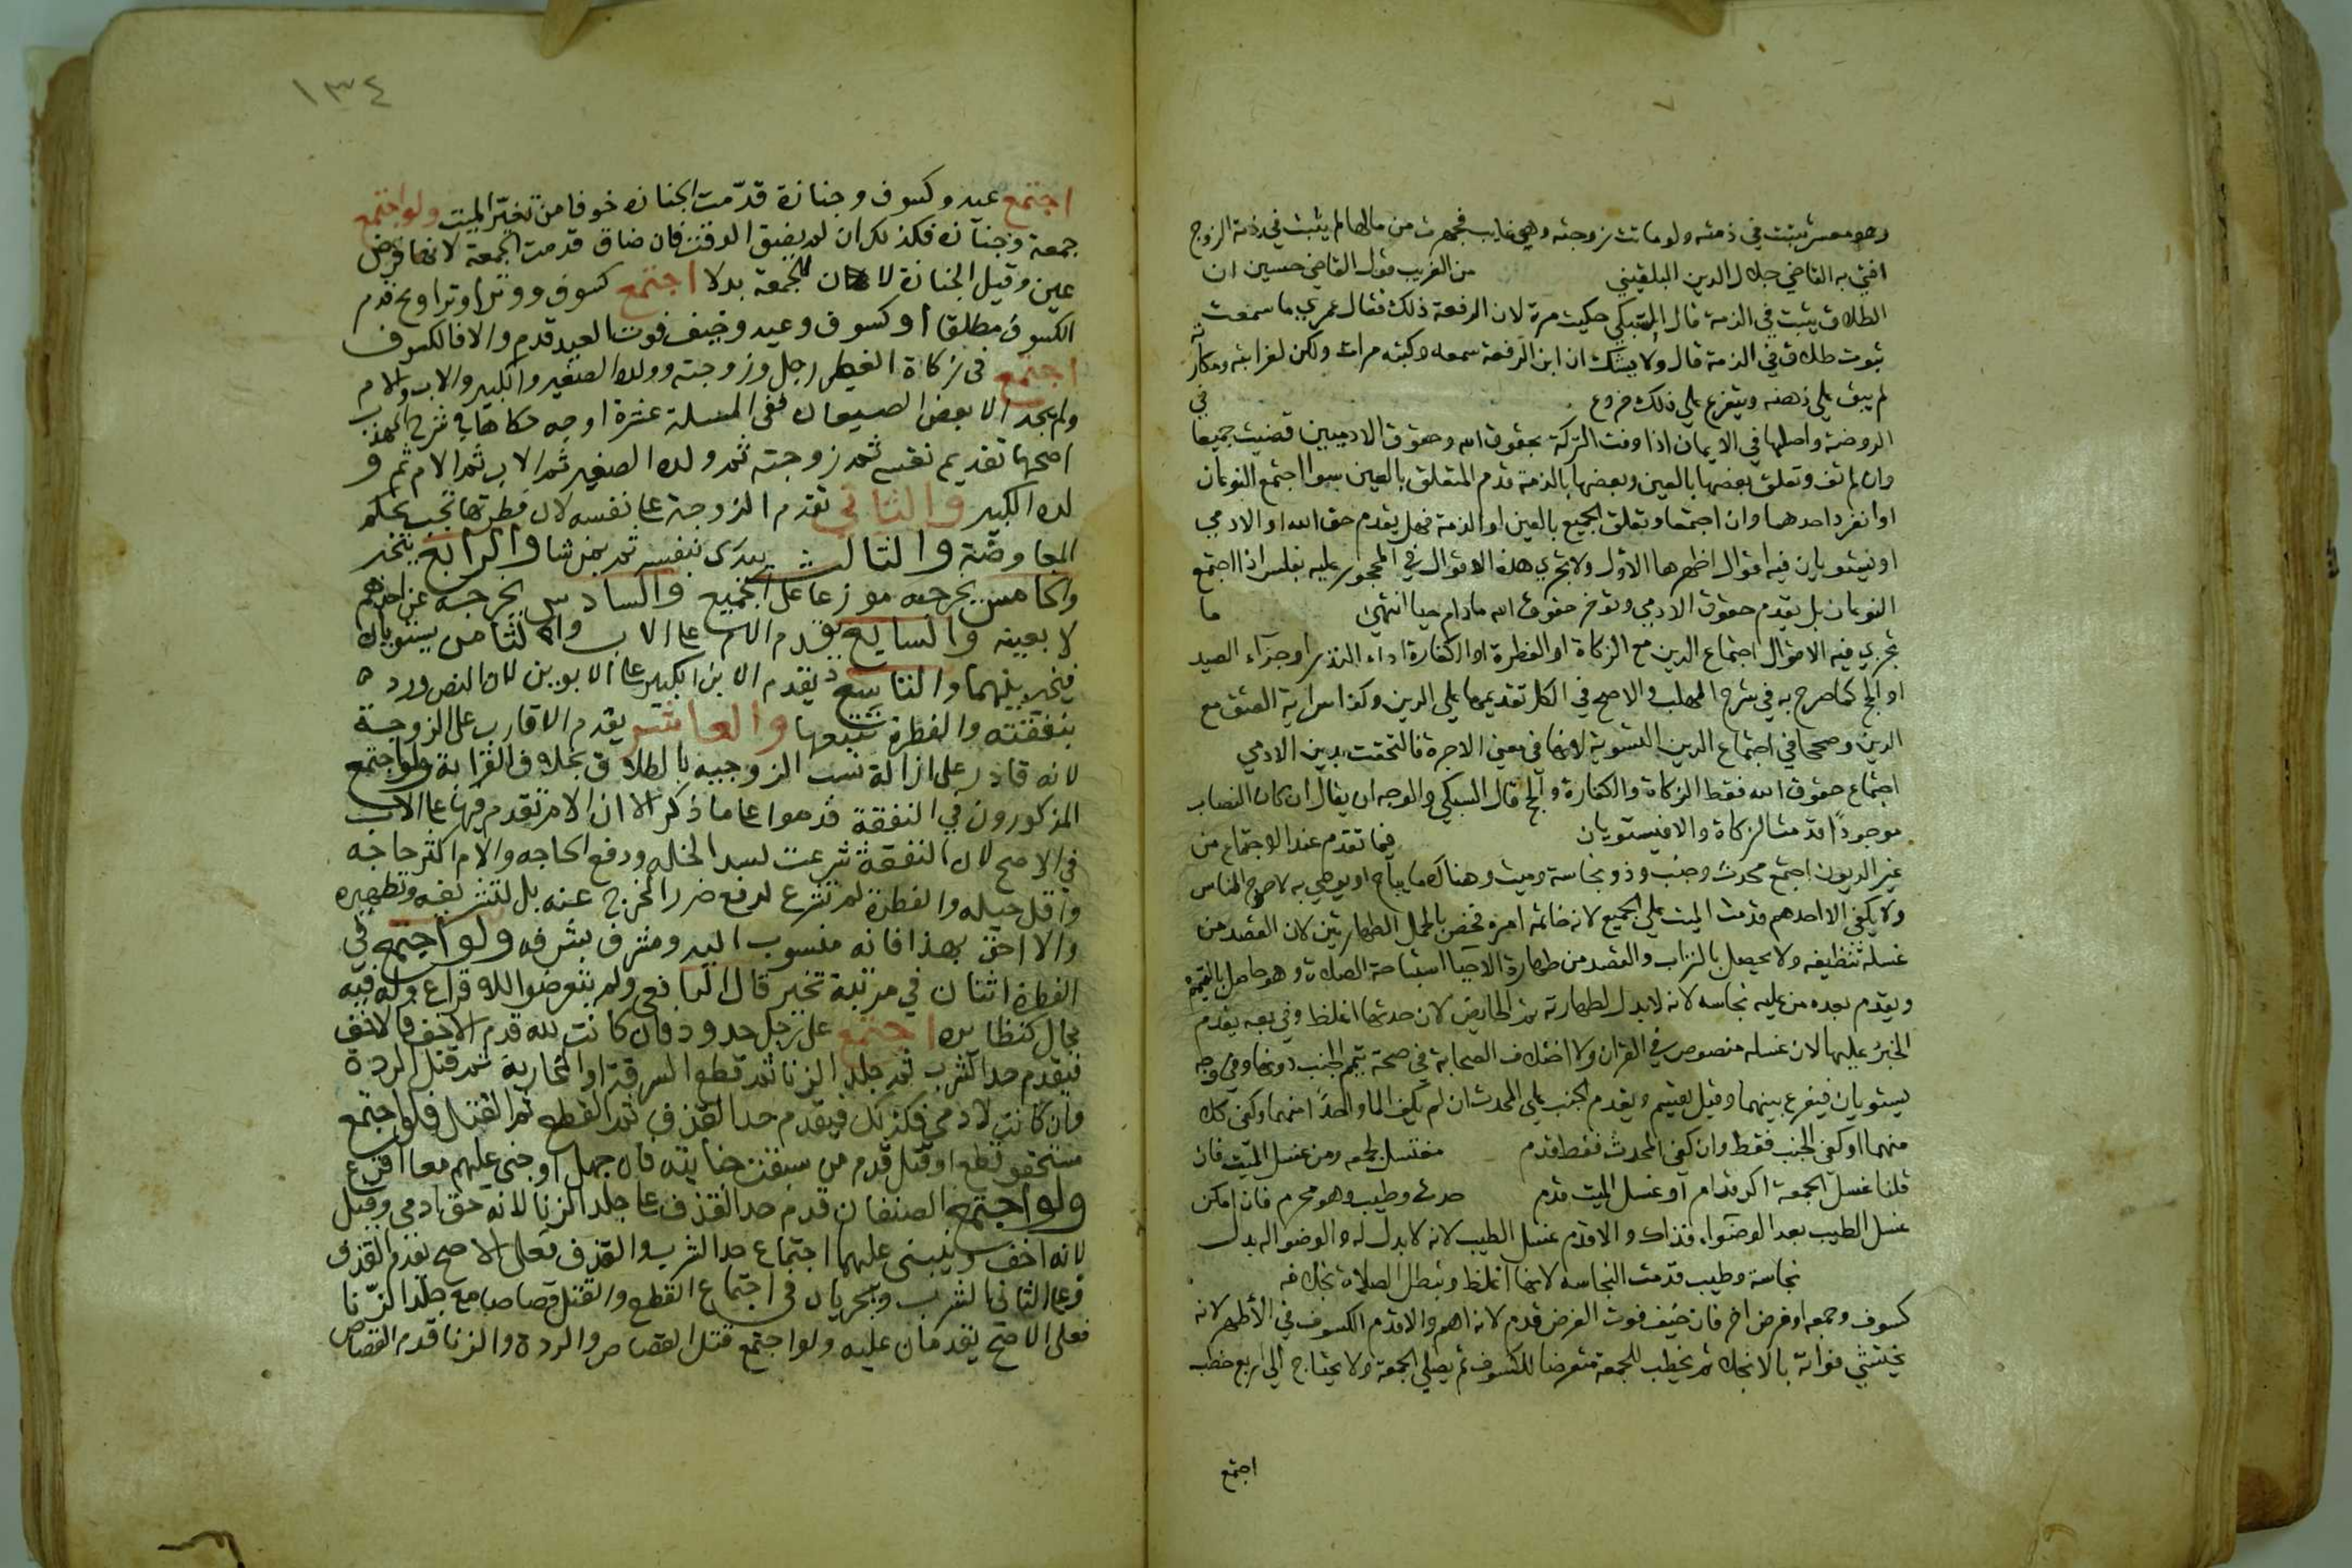 وهو معسر تثبت في ذمته ولو ماتت زوجته وهي غايب فجهزت من مالها لم يثبت في ذمة الزوج
افتى به القاضي جلال الدين البلقيني من الغريب قول القاضي حسين ان
الطلاق يثبت في الذمة قال السبكي حكيت مرة لابن الرفعة ذلك فقال عمري ما سمعت
ثبوت طلاق في الذمة قال ولا يشك ان ابن الرفعة سمعه وكتبه مرات ولكن لغرابته ونكارته
لم يبق على ذهنه ويتفرع على ذلك فروع في
الروضة واصلها في الايمان اذا وفت التركة بحقوق الله وحقوق الادميين قضيت جميعا
وان لم تف وتعلق بعضها بالعين وبعضها بالذمة قدم المتعلق بالعين سوا اجتمع النوعان
او انفرد احدهما وان اجتمعا وتعلق الجميع بالعين او الذمة فهل يقدم حق الله او الادمي
او يستويان فيه اقوال اظهرها الاول ولا تجري هذه الاقوال في المحجور عليه بفلس اذا اجتمع
النوعان بل يقدم حقوق الادمي وتؤخر حقوق الله مادام حيا انتهى ما
تجري فيه الاقوال اجتماع الدين مع الزكاة او الفطرة او الكفارة اداء النذر او جزآء الصيد
او الحج كما صرح به في شرح المهذب والاصح في الكل تقديمها على الدين وكذا سراية العتق مع
الدين وصححا في اجتماع الدين التسوية لانها في معنى الاجرة فالتحقت بدين الادمي
اجتماع حقوق الله فقط الزكاة والكفارة والحج قال السبكي والوجه ان يقال ان كان النصاب
موجودًا قدمت الزكاة والا فيستويان فيما تقدم عند الاجتماع من
غير الديون اجتمع محدث وجنب وذو نجاسة وميت وهناك ما يباح او يوصي به لاحوج الناس
ولا يكفي الا احدهم قدمت الميت على الجميع لانه خاتمة امره فخص باكمل الطهارتين لان القصد من
غسله تنظيفه ولا يحصل بالتراب والقصد من طهارة الاحيا استباحة الصلاة وهو حاصل بالتيمم
ويقدم بعده من عليه نجاسه لانه لا بدل لطهارته ثم الحايض لان حدثها اغلظ وفي وجه يقدم
الجنب عليها لان غسله منصوص في القران ولا اختلاف الصحابة في صحة تيمم الجنب دونها وفي وجه
يستويان فيقرع بينهما وقيل يقسم ويقدم الجنب على المحدث ان لم يكف الما واحدًا منهما وكفى كلا
منهما او كفى الجنب فقط وان كفى المحدث فقط قدم مغتسل لجمعه ومن غسل الميت فان
قلنا غسل الجمعة اكد قدام او غسل الميت قدم حدث وطيب وهو محرم فان امكن
غسل الطيب بعد الوضوء فذاك والا قدم غسل الطيب لانه لا بدل له والوضو اله بدل
نجاسة وطيب قدمت النجاسه لانها اغلظ وتبطل الصلاة بخلافه
كسوف وجمعه او فرض اخر فان خيف فوت الفرض قدم لانه اهم والا قدم الكسوف في الأظهر لانه
يخشى فواته بالانجلا ثم يخطب للجمعة متعرضا للكسوف ثم يصلي الجمعة ولا يحتاج الى اربع خطب
اجتمع
١٣٤
اجتمع عيد وكسوف وجنازة قدّمت الجنازه خوفا من تغيّر الميت ولو اجتمع
جمعة وجنازه فكذلك ان لم يضيق الوقت فان ضاق قدمت الجمعة لانها فرض
عين وقيل الجنازة لان للجمعة بدلا اجتمع كسوف ووتر او تراويح قدم
الكسوف مطلقا او كسوف وعيد وخيف فوت العيد قدم والا فالكسوف
اجتمع في زكاة الفطر رجل وزوجته وولده الصغير والكبير والاب والام
ولم يجد الا بعض الصيعان ففي المسلة عشرة اوجه حكاها في شرح المهذب
اصحها تقديم نفسه ثم زوجته ثم ولده الصغير ثم الاب ثم الام ثم و
لده الكبير والثاني تقدم الزوجة على نفسه لان فطرتها تجب بحكم
المعاوضة والثالث يبدى بنفسه ثم بمن شا والرابع يتخير
والخامس يخرجه موزعا على الجميع والسادس يخرجه عن احدهم
لا بعينه والسابع يقدم الام على الاب والثامن يستويان
فيتخير بينهما والتاسع يقدم الابن الكبير على الابوين لان النص ورد
بنفقته والفطرة تتبعها والعاشر يقدم الاقارب على الزوجة
لانه قادر على ازالة نسب الزوجيه بالطلاق بخلاف القرابة ولو اجتمع
المذكورون في النفقة قدموا على ما ذكر الا ان الام تقدم فيها على الاب
في الاصح لان النفقة شرعت لسد الخله ودفع الحاجه والام اكثر حاجه
واقل حيله والفطرة لم تشرع لدفع ضرر المخرج عنه بل لتشريفه وتطهيره
والا احق بهذا فانه منسوب اليه ومشرف بشرفه ولو اجتمع في
الفطرة اثنان في مرتبة تخير قال الرافعي ولم يتعرضوا للاقراع وله فيه
مجال كنظائره اجتمع على رجل حدود فان كانت لله قدم الاخف فالاخف
فيقدم حد الشرب ثم جلد الزنا ثم قطع السرقة او المحاربة ثم قتل الردة
وان كانت لادمي فكذلك فيقدم حد القذف ثم القطع ثم القتل فلو اجتمع
مستحقو قطع او قتل قدم من سبقت جنايته فان جهل او جنى عليهم معا اقرع
ولو اجتمع الصنفان قدم حد القذف على جلد الزنا لانه حق ادمي وقيل
لانه اخف وينبني عليهما اجتماع حد الشرب والقذف فعلى الاصح يقدم القذف
وعلى الثاني الشرب ويجريان في اجتماع القطع والقتل قصاصا مع جلد الزّنا
فعلى الاصح يقدمان عليه ولو اجتمع قتل القصاص والردة والزنا قدم القصاص